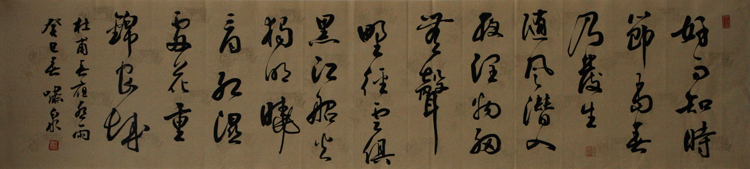 好雨知時
節當春
乃發生
隨風潛入
夜潤物細
無聲
野徑雲俱
黑江船火
獨明曉
看紅濕
處花重
錦官城
杜甫春夜喜雨
癸巳春嘯泉